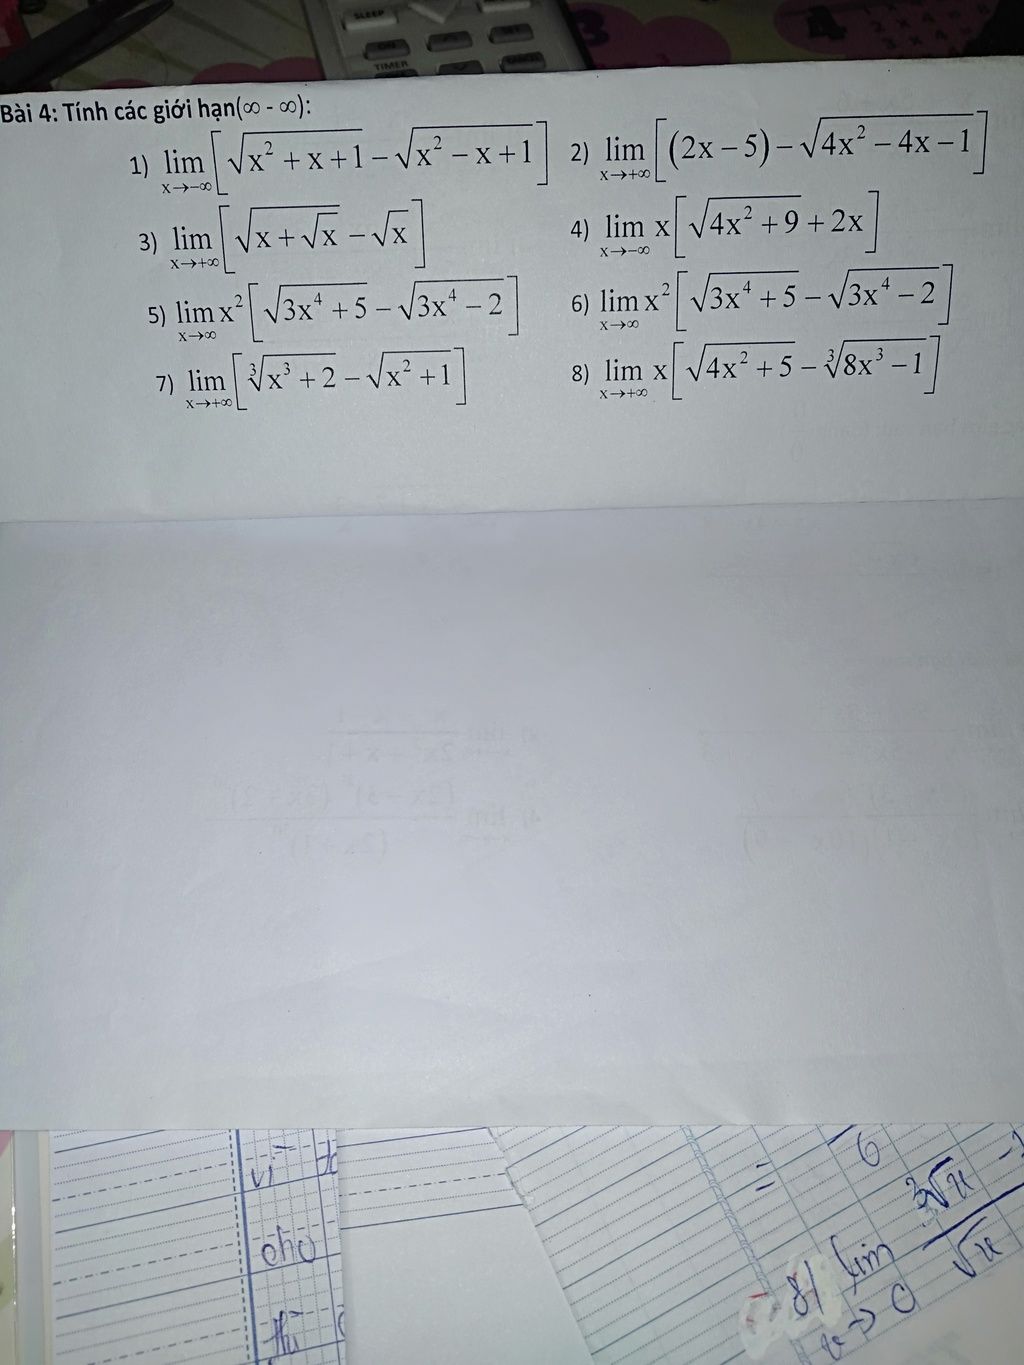 SLEEP
TIMER
Bài 4: Tính các giới hạn(∞ - ∞):
1) lim x→-∞ [√(x² + x + 1) − √(x² − x + 1)] 2) lim x→+∞ [(2x − 5) − √(4x² − 4x − 1)]
3) lim x→+∞ [√(x + √x) − √x] 4) lim x→-∞ x[√(4x² + 9) + 2x]
5) lim x→∞ x² [√(3x⁴ + 5) − √(3x⁴ − 2)] 6) lim x→∞ x² [√(3x⁴ + 5) − √(3x⁴ − 2)]
7) lim x→+∞ [∛(x³ + 2) − √(x² + 1)] 8) lim x→+∞ x[√(4x² + 5) − ∛(8x³ − 1)]
= 6
cho
8) lim x→0 ∛x − 1
√x